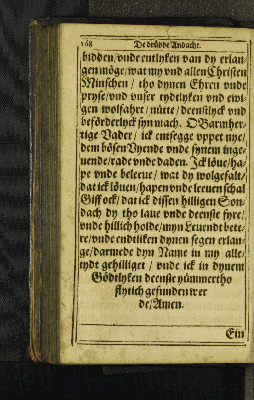 168 De drüdde Andacht.
bidden/vnde entlyken van dy erlan-
gen möge/wat my vnd allen Christen
Minschen / tho dynen Ehren vnde
pryse/vnd vnser tydtlyken vnd ewi-
gen wolfahrt / nütte / deenstlyck vnd
beförderlyck syn mach. O Barmher-
tige Vader / ick entsegge vppet nye/
dem bösen Vyende vnde synem inge-
uende/rade vnde daden. Ick löue/ha-
pe vnde beleeue / wat dy wolgefalt/
dat ick löuen/hapen vnde leeuen schal
Giff ock/dat ick dissen hilligen Son-
dach dy tho laue vnde deenste fyre/
vnde hillich holde/myn Leuendt bete-
re/vnde endtliken dynen segen erlan-
ge/darmede dyn Name in my alle-
tydt gehilliget / vnde ick in dynem
Gödtlyken deenste yümmertho
flytich gefunden wer
de/Amen.
Ein